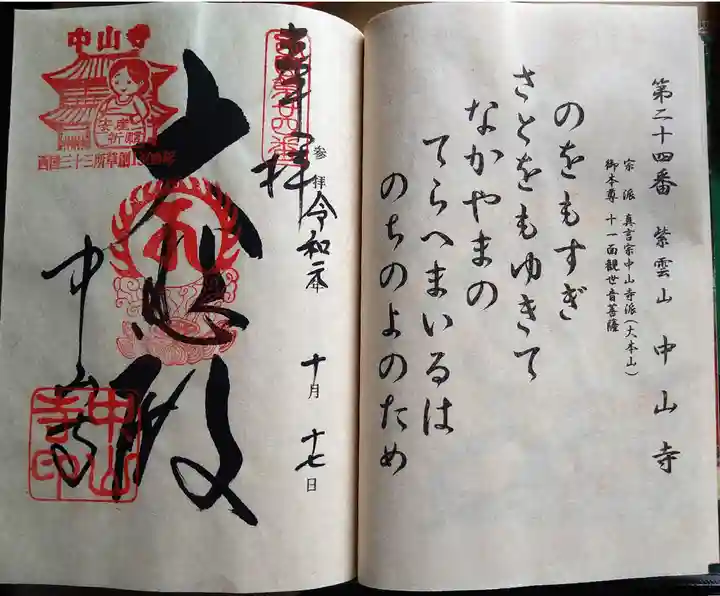 第二十四番 紫雲山 中山寺
宗派 真言宗中山寺派(大本山)
御本尊 十一面観世音菩薩
のをもすぎ
さとをもゆきて
なかやまの
てらへまいるは
のちのよのため
奉拝
参拝 令和元年 十月 十七日
大悲殿
中山寺
中山寺
安産
祈願
西国三十三所草創1300年
中山寺印